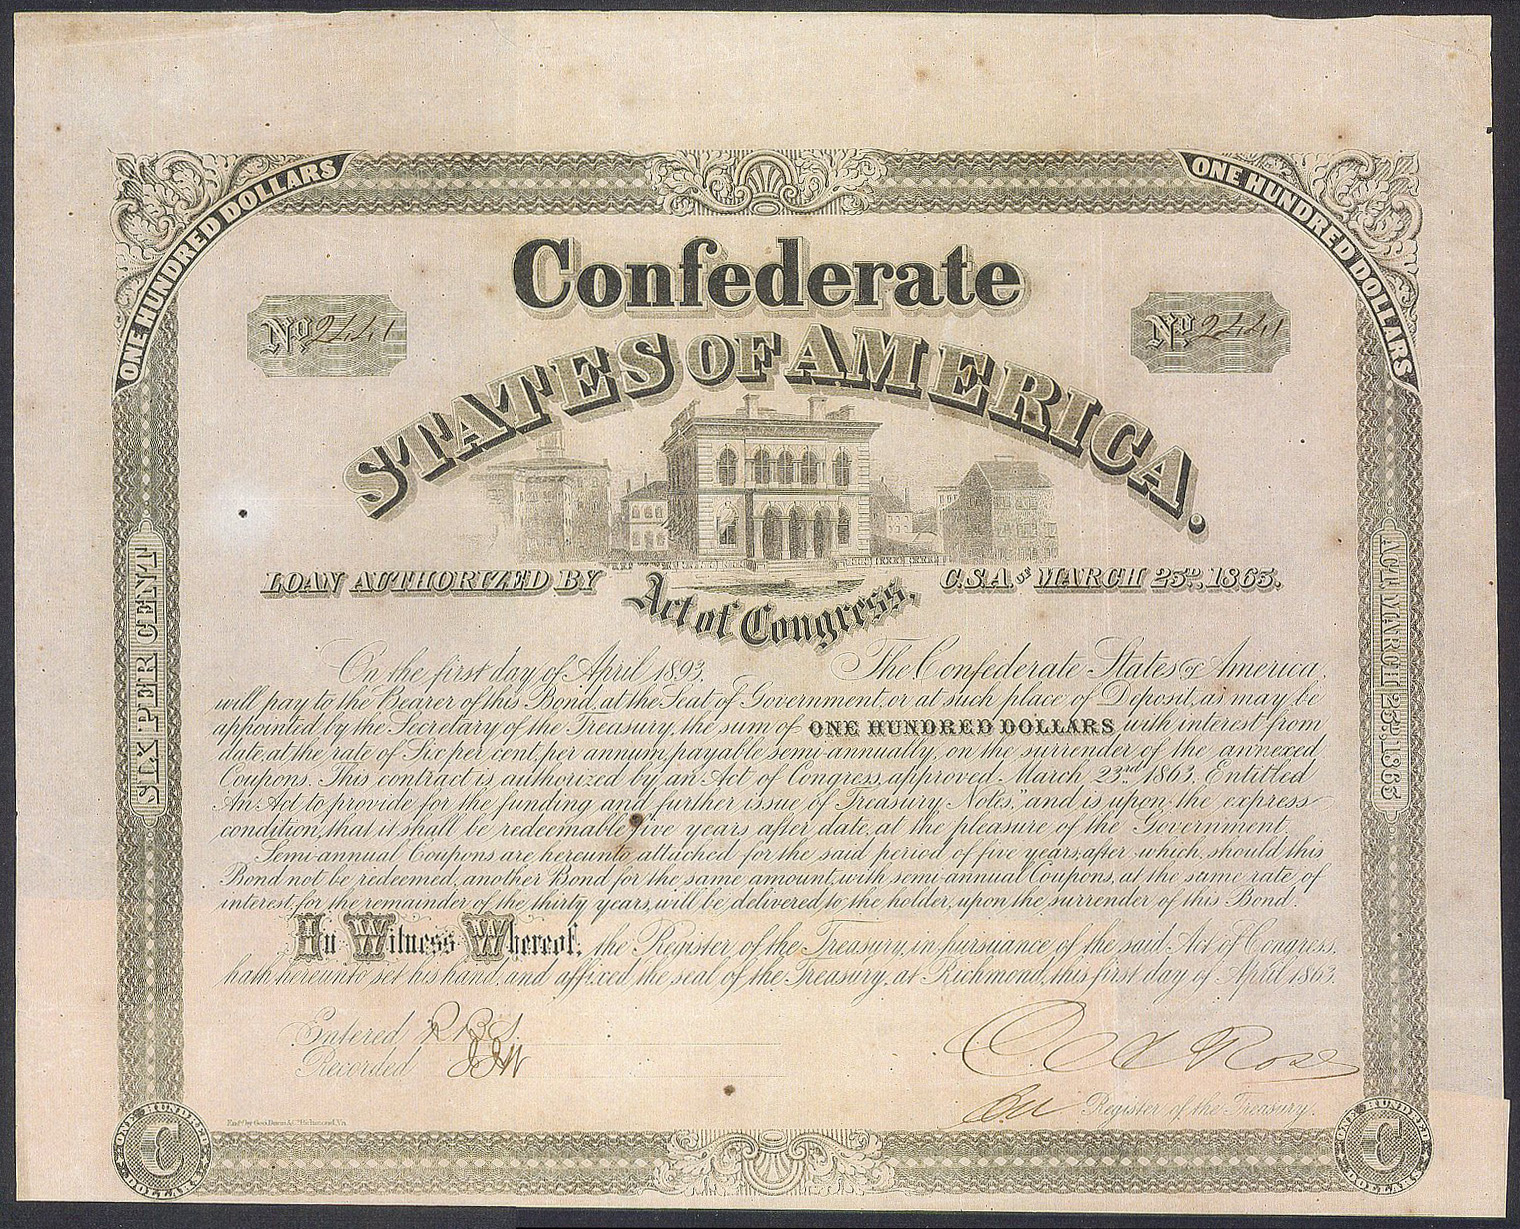 ONE HUNDRED DOLLARS
ONE HUNDRED DOLLARS
Confederate
No. 2441
No. 2441
STATES OF AMERICA.
LOAN AUTHORIZED BY Act of Congress, C.S.A. OF MARCH 23D. 1863.
SIX PER CENT
ACT MARCH 23D. 1863
On the first day of April 1893, The Confederate States of America,
will pay to the Bearer of this Bond, at the Seat of Government, or at such place of Deposit, as may be
appointed by the Secretary of the Treasury, the sum of ONE HUNDRED DOLLARS with interest from
date, at the rate of Six per cent, per annum, payable semi-annually, on the surrender of the annexed
Coupons. This contract is authorized by an Act of Congress, approved March 23rd 1863, Entitled
"An Act to provide for the funding and further issue of Treasury Notes," and is upon the express
condition, that it shall be redeemable five years after date, at the pleasure of the Government.
Semi-annual Coupons are hereunto attached for the said period of five years, after which, should this
Bond not be redeemed, another Bond for the same amount, with semi-annual Coupons, at the same rate of
interest, for the remainder of the thirty years, will be delivered to the holder, upon the surrender of this Bond.
In Witness Whereof, the Register of the Treasury, in pursuance of the said Act of Congress,
hath hereunto set his hand, and affixed the seal of the Treasury, at Richmond, this first day of April 1863.
Entered
Recorded
Rose
Register of the Treasury.
ONE HUNDRED DOLLARS
C
ONE HUNDRED DOLLARS
C